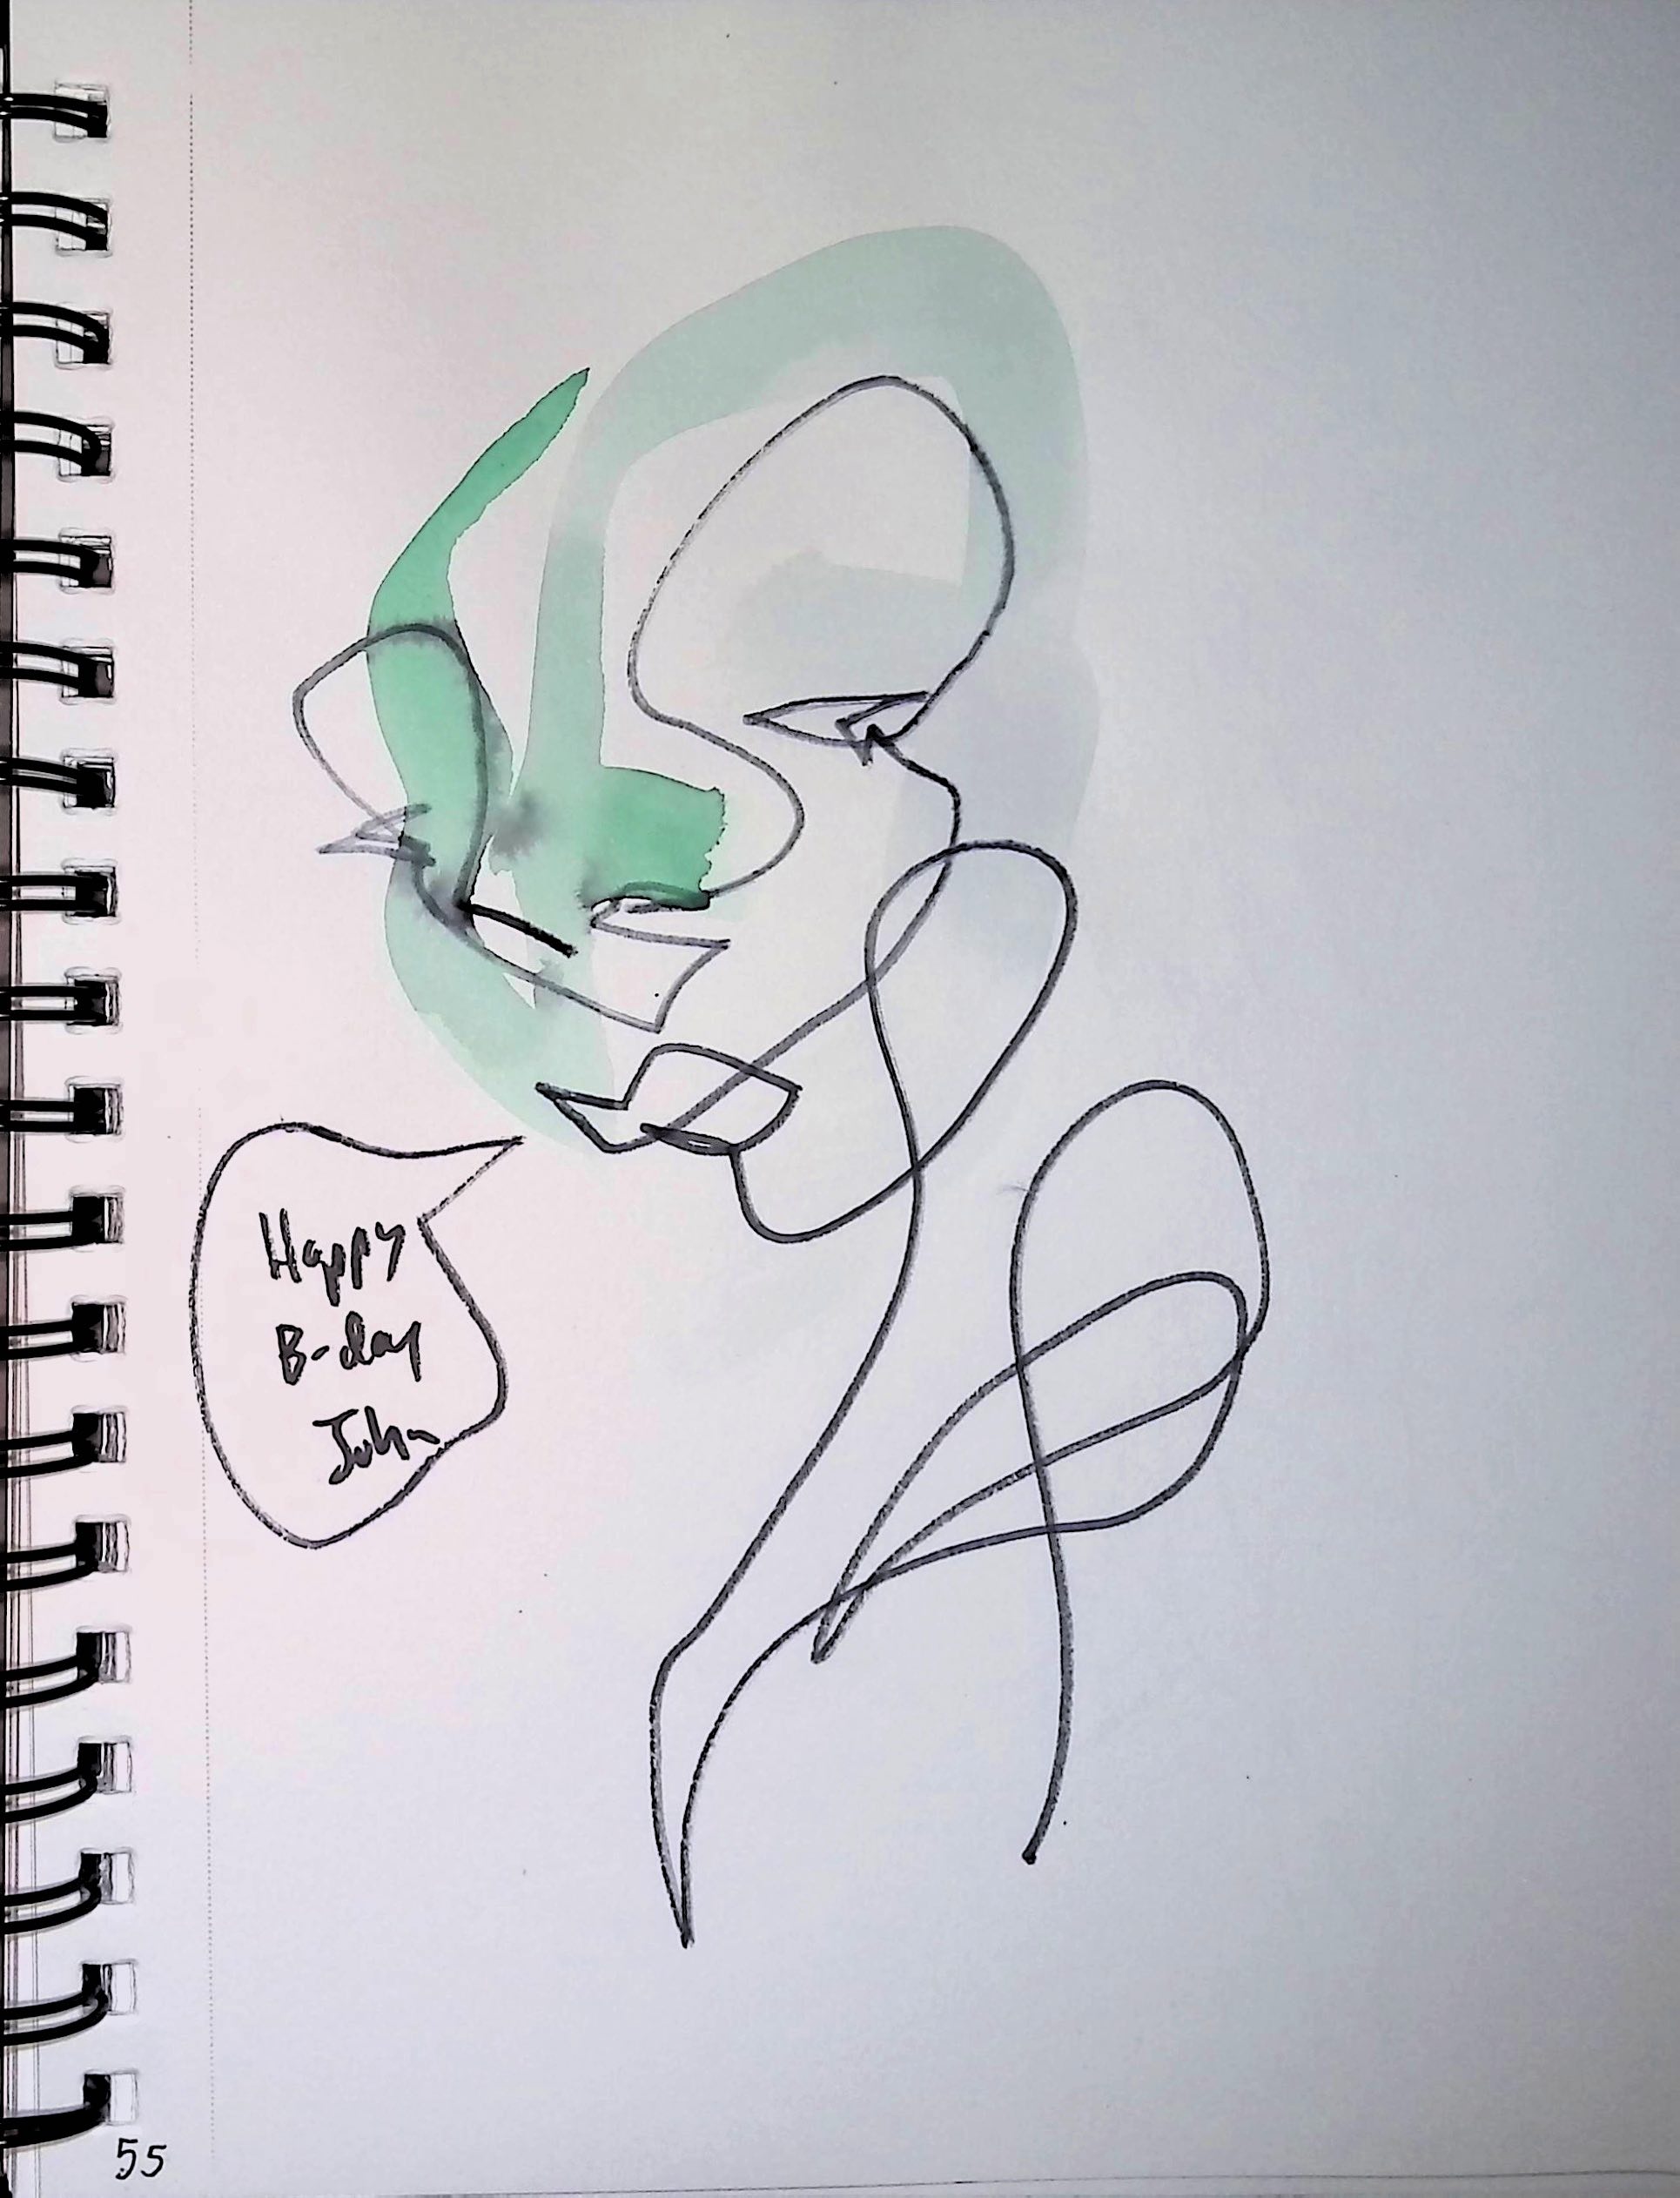 Happy
B-day
John
55